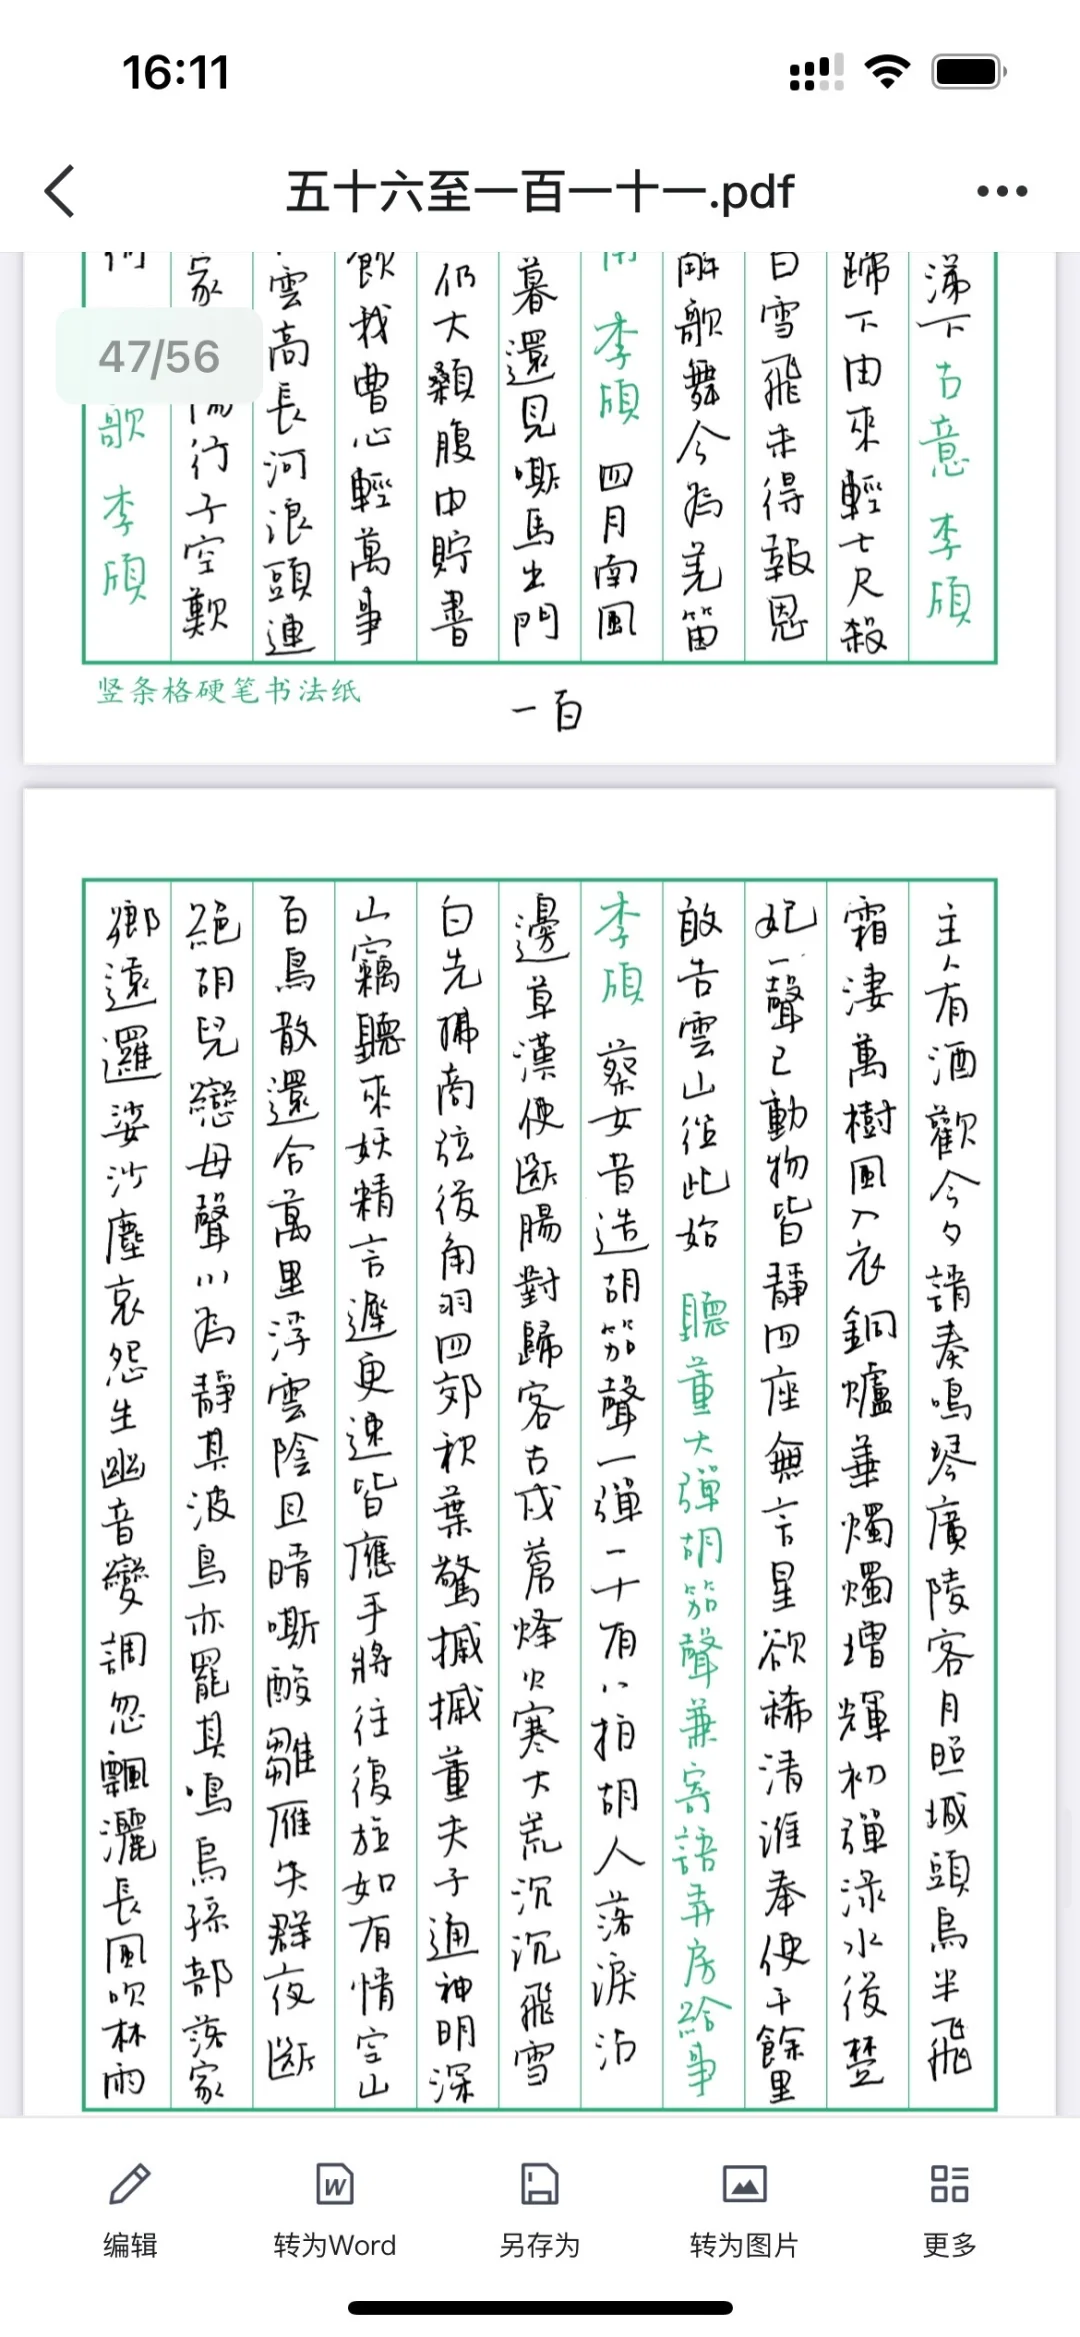 16:11
五十六至一百一十一.pdf
47/56
涕下 古意 李頎
蹄下由來輕七尺殺
白雪飛未得報恩
解歌舞今為羌笛
李頎 四月南風
暮還見嘶馬出門
仍大顙腹中貯書
飲我曹心輕萬事
雲高長河浪頭連
家傷行子空歎
歌 李頎
竖条格硬笔书法纸
一百
主人有酒歡今夕請奏鳴琴廣陵客月照城頭烏半飛
霜淒萬樹風入衣銅爐華燭燭增輝初彈淥水後楚
妃一聲已動物皆靜四座無言星欲稀清淮奉使千餘里
敢告雲山從此始 聽董大彈胡笳聲兼寄語弄房給事
李頎 蔡女昔造胡笳聲一彈一十有八拍胡人落淚沾
邊草漢使斷腸對歸客古戍蒼烽火寒大荒沉沉飛雪
白先拂商弦後角羽四郊秋葉驚摵摵董夫子通神明深
山竊聽來妖精言遲更速皆應手將往復旋如有情空山
百鳥散還合萬里浮雲陰且晴嘶酸雛雁失群夜斷
絕胡兒戀母聲川為靜其波鳥亦罷其鳴烏孫部落家
鄉遠邏娑沙塵哀怨生幽音變調忽飄灑長風吹林雨
编辑 转为Word 另存为 转为图片 更多